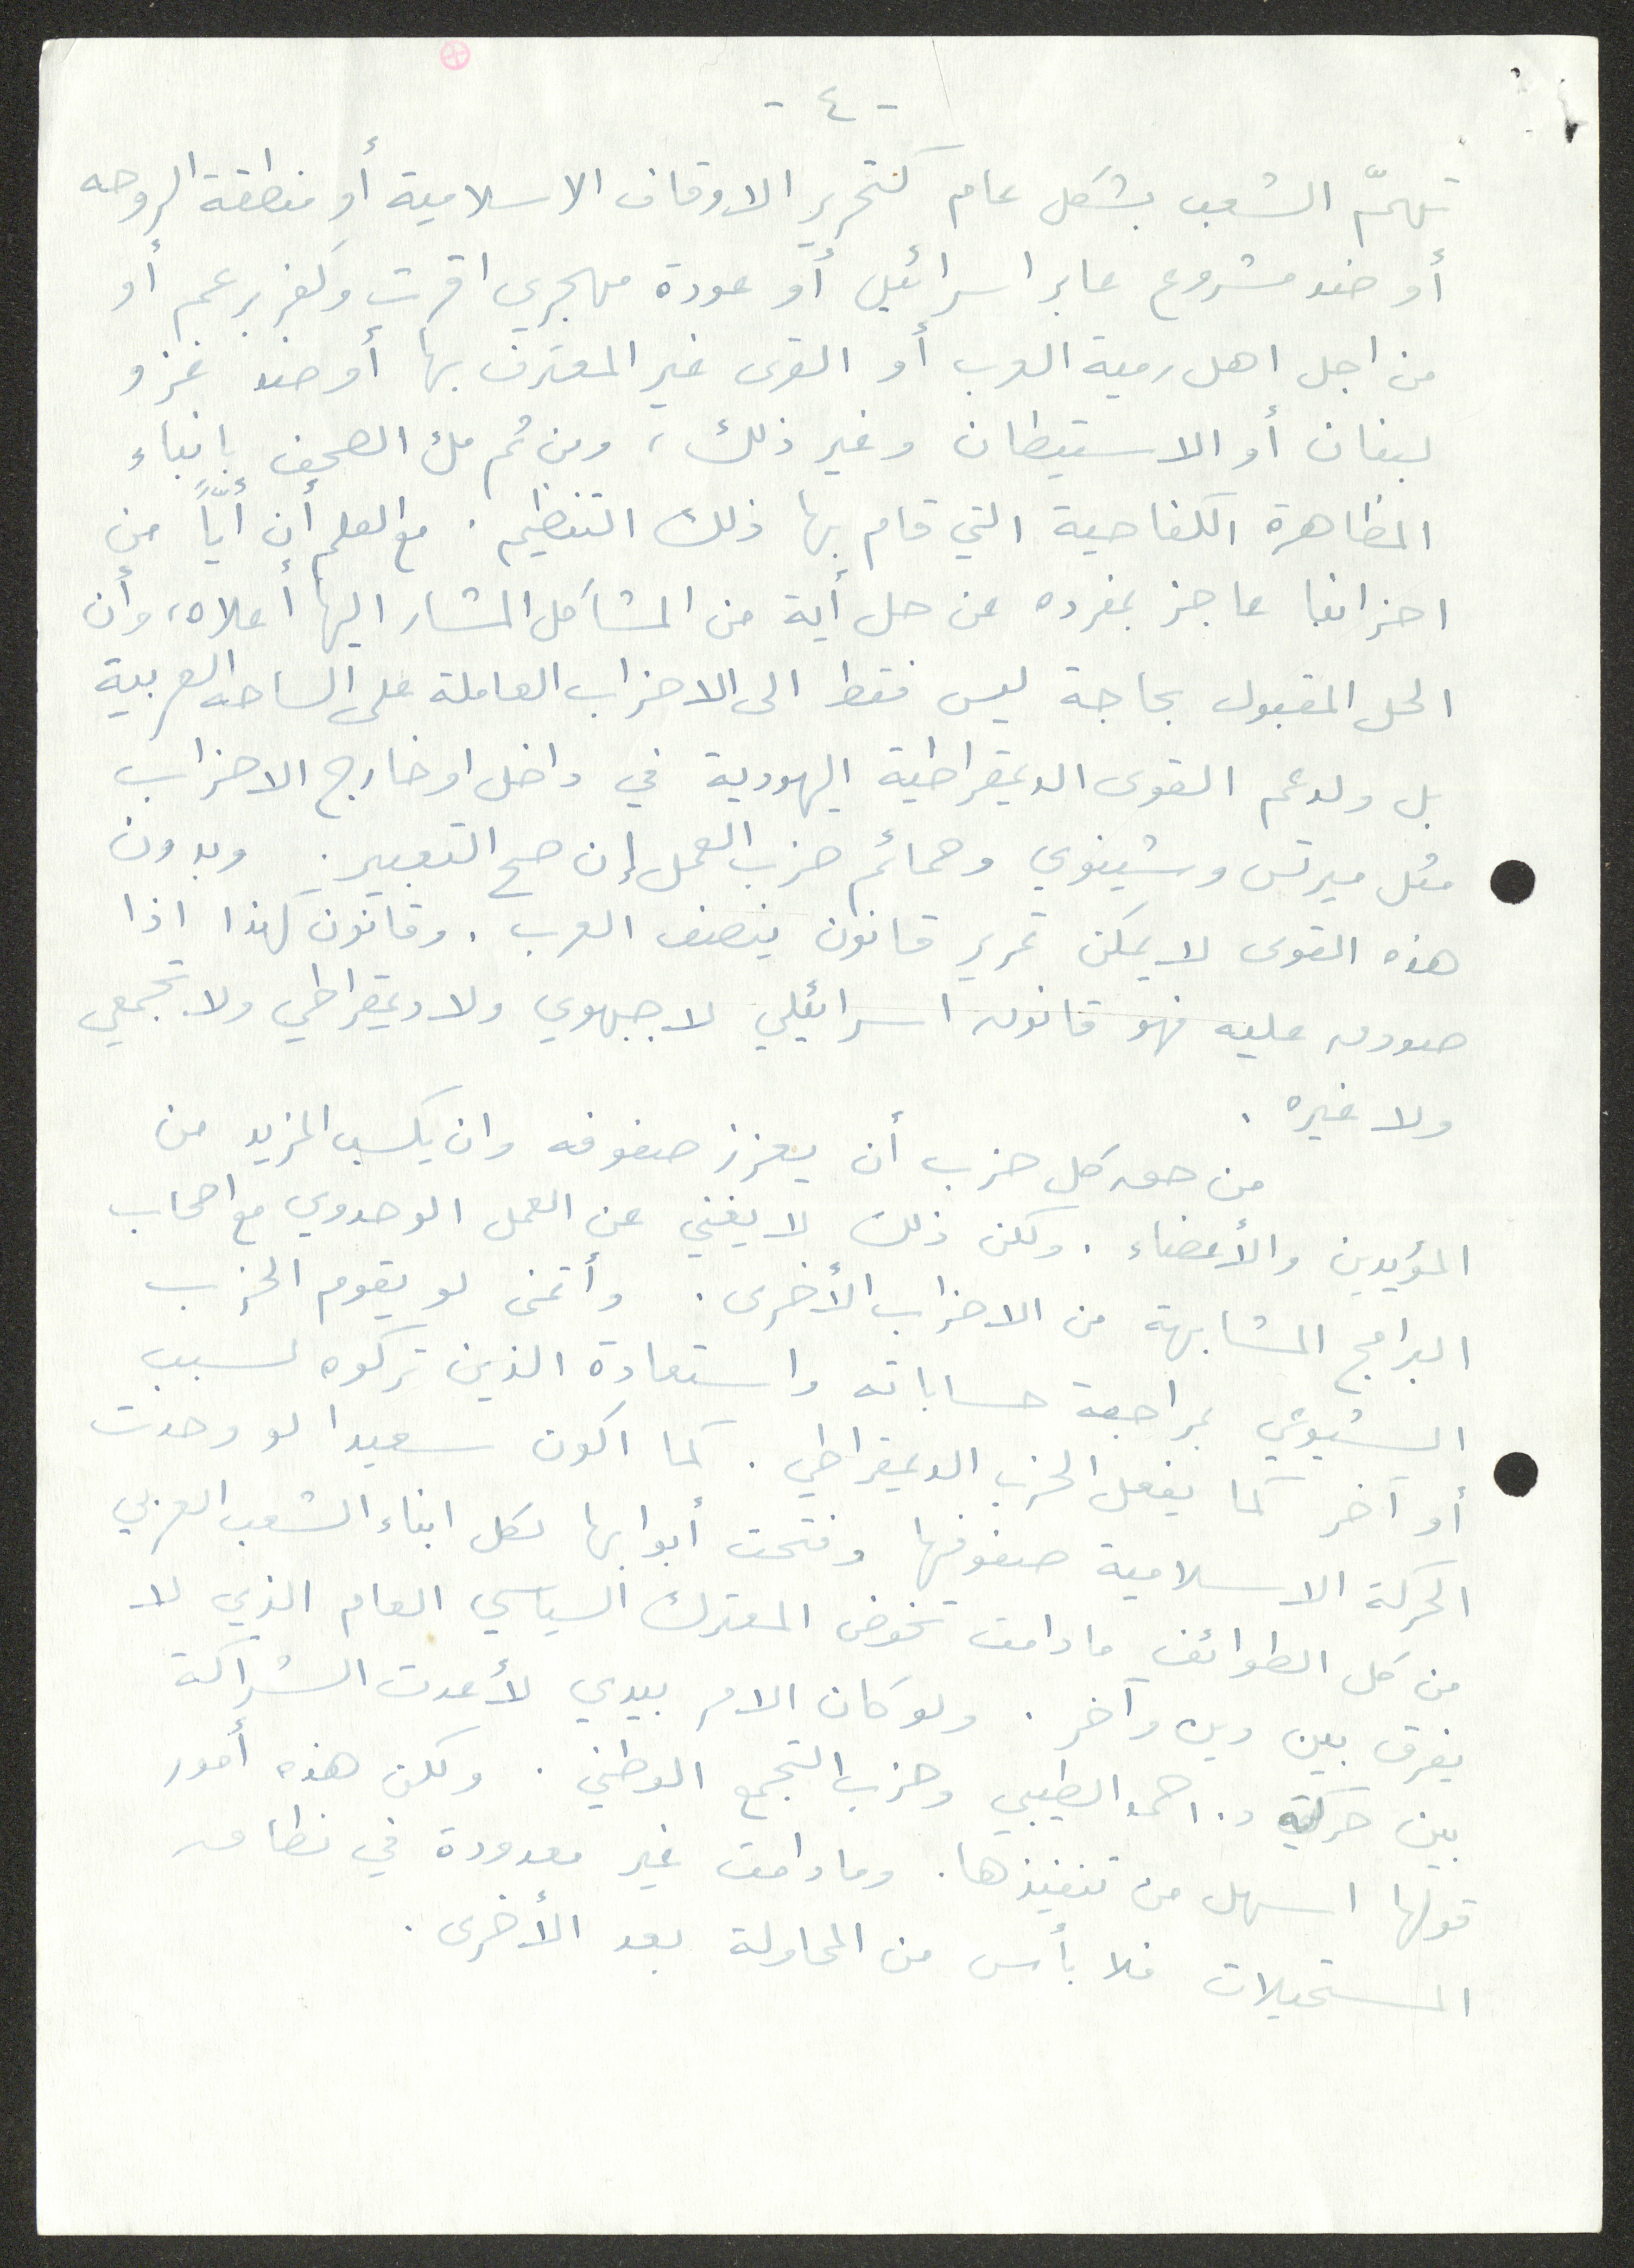 - ٤ -
تهمّ الشعب بشكل عام كتحرير الاوقاف الاسلامية أو منطقة الروحه
أو ضد مشروع عابر اسرائيل أو عودة مهجري اقرت وكفر برعم أو
من اجل اهل رمية العرب أو القرى غير المعترف بها أو ضد غزو
لبنان أو الاستيطان وغير ذلك، ومن ثم ملء الصحف بانباء
المظاهرة الكفاحية التي قام بها ذلك التنظيم. مع العلم أن أيّاً من
احزابنا عاجز بمفرده عن حل أية من المشاكل المشار اليها أعلاه، وأن
الحل المقبول بحاجة ليس فقط الى الاحزاب العاملة على الساحه العربية
بل ولدعم القوى الديمقراطية اليهودية في داخل او خارج الاحزاب
مثل ميرتس وشينوي وحمائم حزب العمل إن صح التعبير. وبدون
هذه القوى لا يمكن تمرير قانون ينصف العرب. وقانون كهذا اذا
صودق عليه فهو قانون اسرائيلي لا جبهوي ولا ديمقراطي ولا تجمعي
ولا غيره.
من حق كل حزب أن يعزز صفوفه وان يكسب المزيد من
المؤيدين والأعضاء. ولكن ذلك لا يغني عن العمل الوحدوي مع اصحاب
البرامج المشابهة من الاحزاب الأخرى. وأتمنى لو يقوم الحزب
الشيوعي بمراجعة حساباته واستعادة الذين تركوه لسبب
أو آخر كما يفعل الحزب الديمقراطي. كما اكون سعيدا لو وحدت
الحركة الاسلامية صفوفها وفتحت أبوابها لكل ابناء الشعب العربي
من كل الطوائف ما دامت تخوض المعترك السياسي العام الذي لا
يفرق بين دين وآخر. ولو كان الامر بيدي لأعدت الشراكة
بين حركة د. احمد الطيبي وحزب التجمع الوطني. ولكن هذه أمور
قولها اسهل من تنفيذها. وما دامت غير معدودة في نطاق
المستحيلات فلا بأس من المحاولة بعد الأخرى.